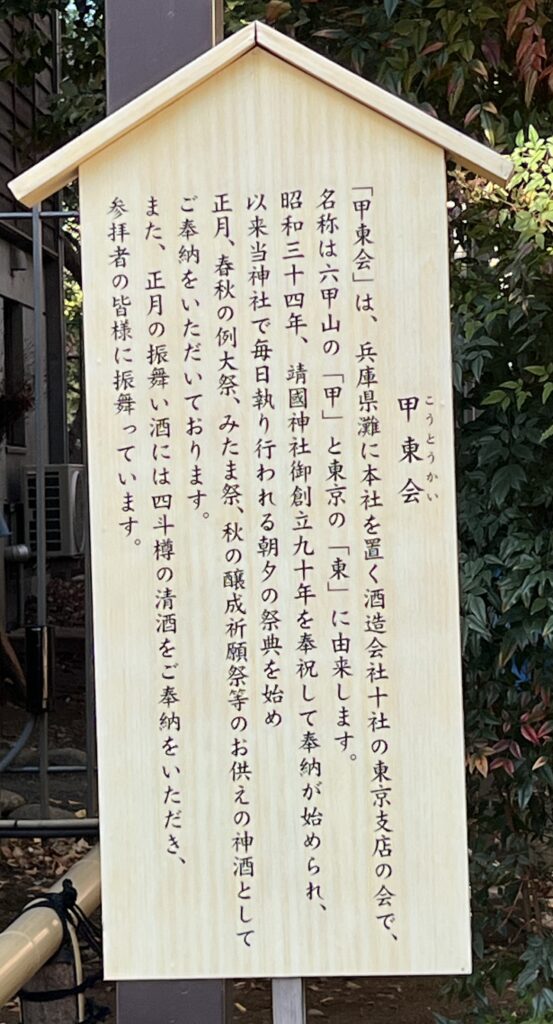 こうとうかい
甲東会
「甲東会」は、兵庫県灘に本社を置く酒造会社十社の東京支店の会で、
名称は六甲山の「甲」と東京の「東」に由来します。
昭和三十四年、靖國神社御創立九十年を奉祝して奉納が始められ、
以来当神社で毎日執り行われる朝夕の祭典を始め
正月、春秋の例大祭、みたま祭、秋の醸成祈願祭等のお供えの神酒として
ご奉納をいただいております。
また、正月の振舞い酒には四斗樽の清酒をご奉納をいただき、
参拝者の皆様に振舞っています。